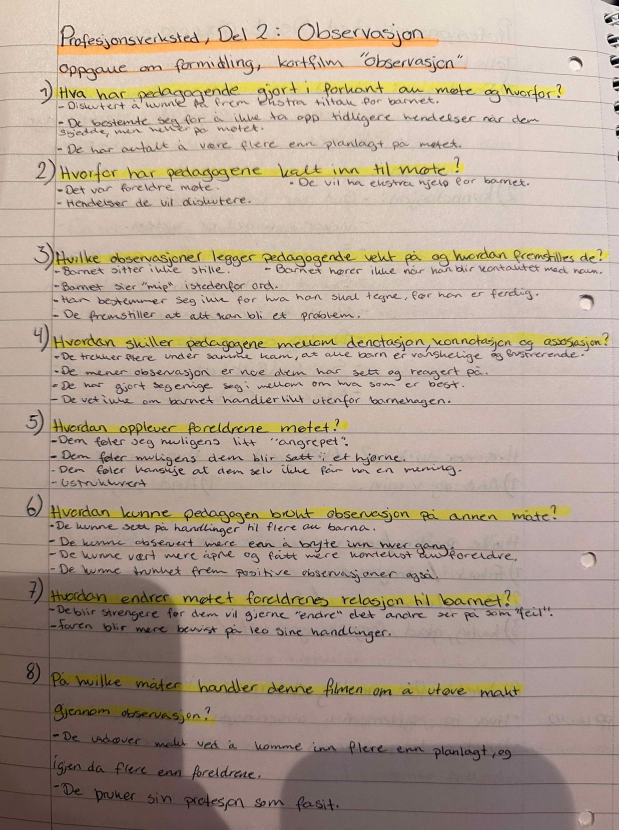 Profesjonsverksted, Del 2: Observasjon
oppgave om formidling, kortfilm "observasjon"
1) Hva har pedagogende gjort i forkant av møte og hvorfor?
- Diskutert å kunne få frem ekstra tiltak for barnet.
- De bestemte seg for å ikke ta opp tidligere hendelser når dem
skjedde, men heller på møtet.
- De har avtalt å være flere enn planlagt på møtet.
2) Hvorfor har pedagogene kalt inn til møte?
- Det var foreldre møte. - De vil ha ekstra hjelp for barnet.
- Hendelser de vil diskutere.
3) Hvilke observasjoner legger pedagogende vekt på og hvordan fremstilles de?
- Barnet sitter ikke stille. - Barnet hører ikke når han blir kontaktet med navn.
- Barnet sier "mip" istedenfor ord.
- Han bestemmer seg ikke for hva han skal tegne, før han er ferdig.
- De fremstiller at alt kan bli et problem.
4) Hvordan skiller pedagogene mellom denotasjon, konnotasjon og assosiasjon?
- De trekker flere under samme kam, at alle barn er vanskelige og frustrerende.
- De mener observasjon er noe dem har sett og reagert på.
- De har gjort seg enige seg i mellom om hva som er best.
- De vet ikke om barnet handler likt utenfor barnehagen.
5) Hvordan opplever foreldrene møtet?
- Dem føler seg muligens litt "angrepet".
- Dem føler muligens dem blir satt i et hjørne.
- Dem føler kanskje at dem selv ikke får inn en mening.
- Ustrukturert
6) Hvordan kunne pedagogen brukt observasjon på annen måte?
- De kunne sett på handlinger til flere av barna.
- De kunne observert mere enn å bryte inn hver gang.
- De kunne vært mere åpne og fått mere kontekst av foreldre.
- De kunne trukket frem positive observasjoner også.
7) Hvordan endrer møtet foreldrenes relasjon til barnet?
- De blir strengere for dem vil gjerne "endre" det andre ser på som "feil".
- Faren blir mere bevist på leo sine handlinger.
8) På hvilke måter handler denne filmen om å utøve makt
gjennom observasjon?
- De makt ved å komme inn flere enn planlagt, og
igjen da flere enn foreldrene.
- De bruker sin profesjon som fasit.